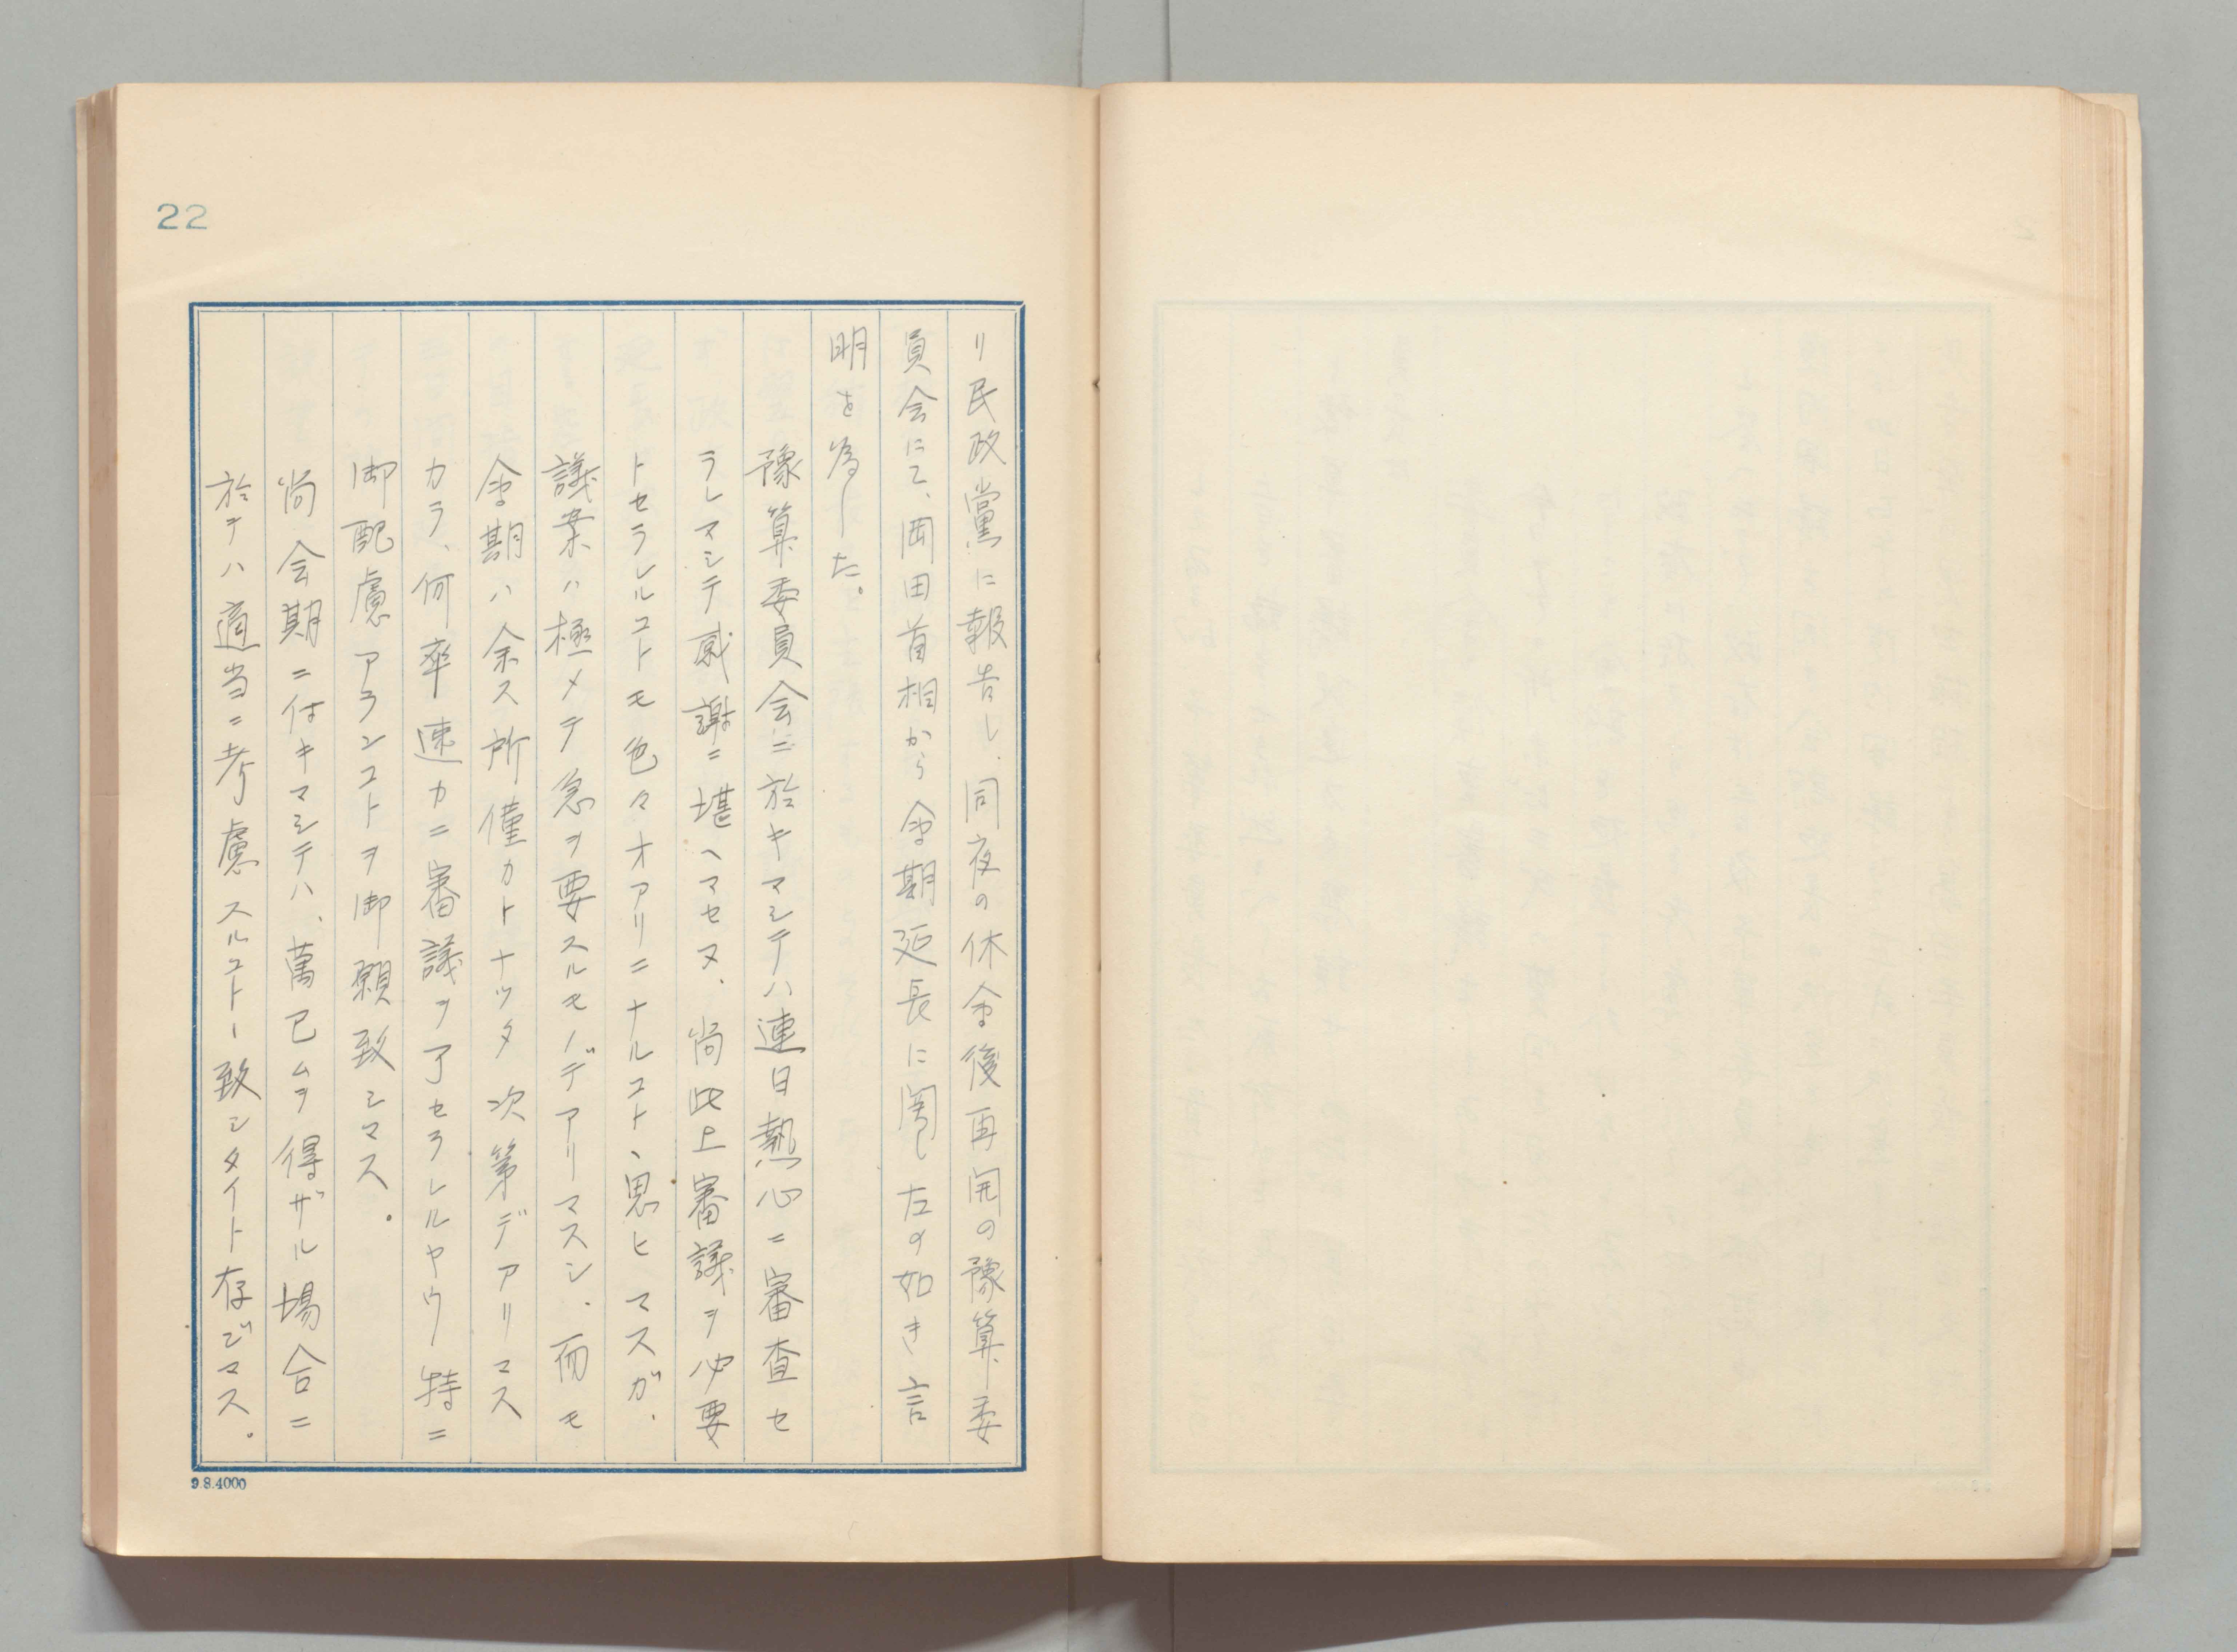 22
リ民政黨に報告し、同夜の休會後再開の豫算委
員会にて、岡田首相から會期延長に関し左の如き言
明を為した。
豫算委員会ニ於キマシテハ連日熱心ニ審査セ
ラレマシテ感謝ニ堪ヘマセヌ、尚此上審議ヲ必要
トセラレルコトモ色々オアリニナルコトヽ思ヒマスガ、
議案ハ極メテ急ヲ要スルモノデアリマスシ、而モ
會期ハ余ス所僅カトナツタ次第デアリマス
カラ、何卒速カニ審議ヲ了セラレルヤウ特ニ
御配慮アランコトヲ御願致シマス。
尚会期ニ付キマシテハ、萬已ムヲ得ザル場合ニ
於テハ適当ニ考慮スルコトヽ致シタイト存ジマス。
9.8.4000